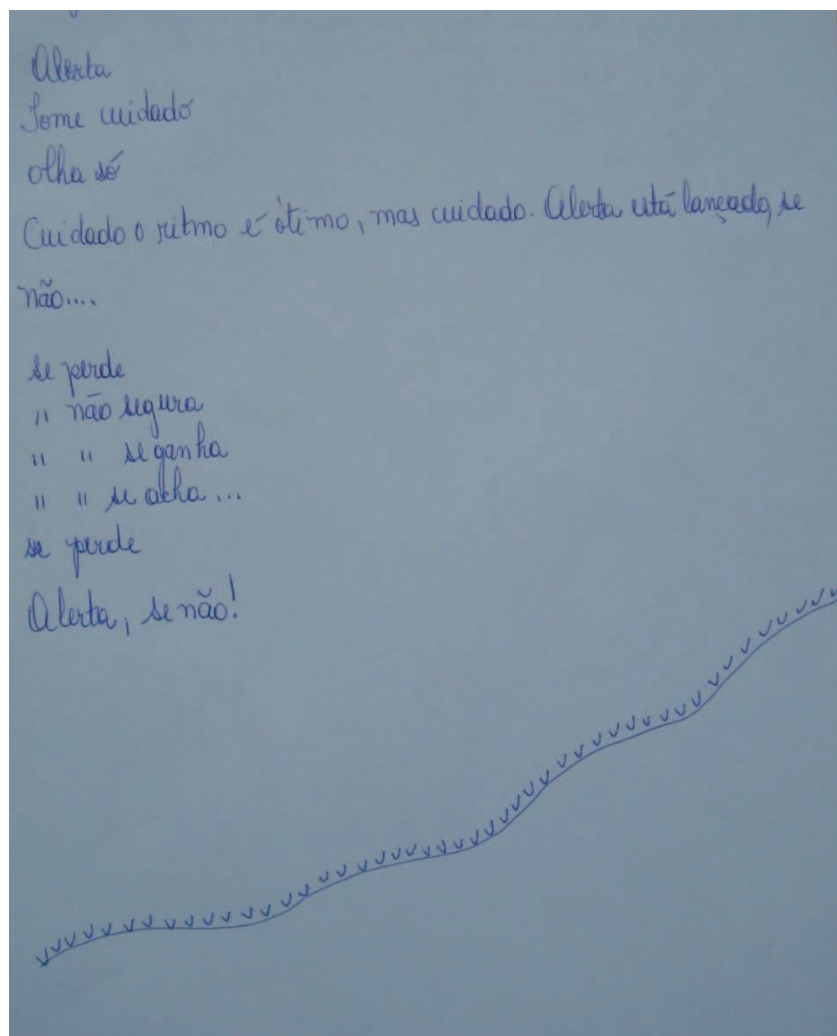 Alerta
Tome cuidado
olha só
Cuidado o ritmo é ótimo, mas cuidado. Alerta está lançado, se
não....
se perde
" não segura
" " se ganha
" " se acha...
se perde
Alerta, se não!